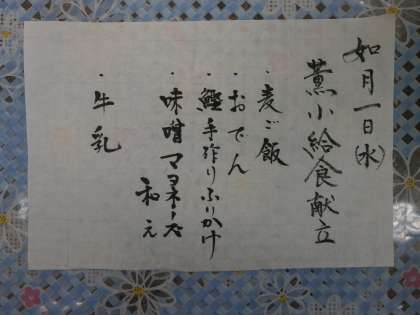 如月一日(水)
薫小給食献立
・麦ご飯
・おでん
・鰹手作りふりかけ
・味噌マヨネーズ
和え
・牛乳